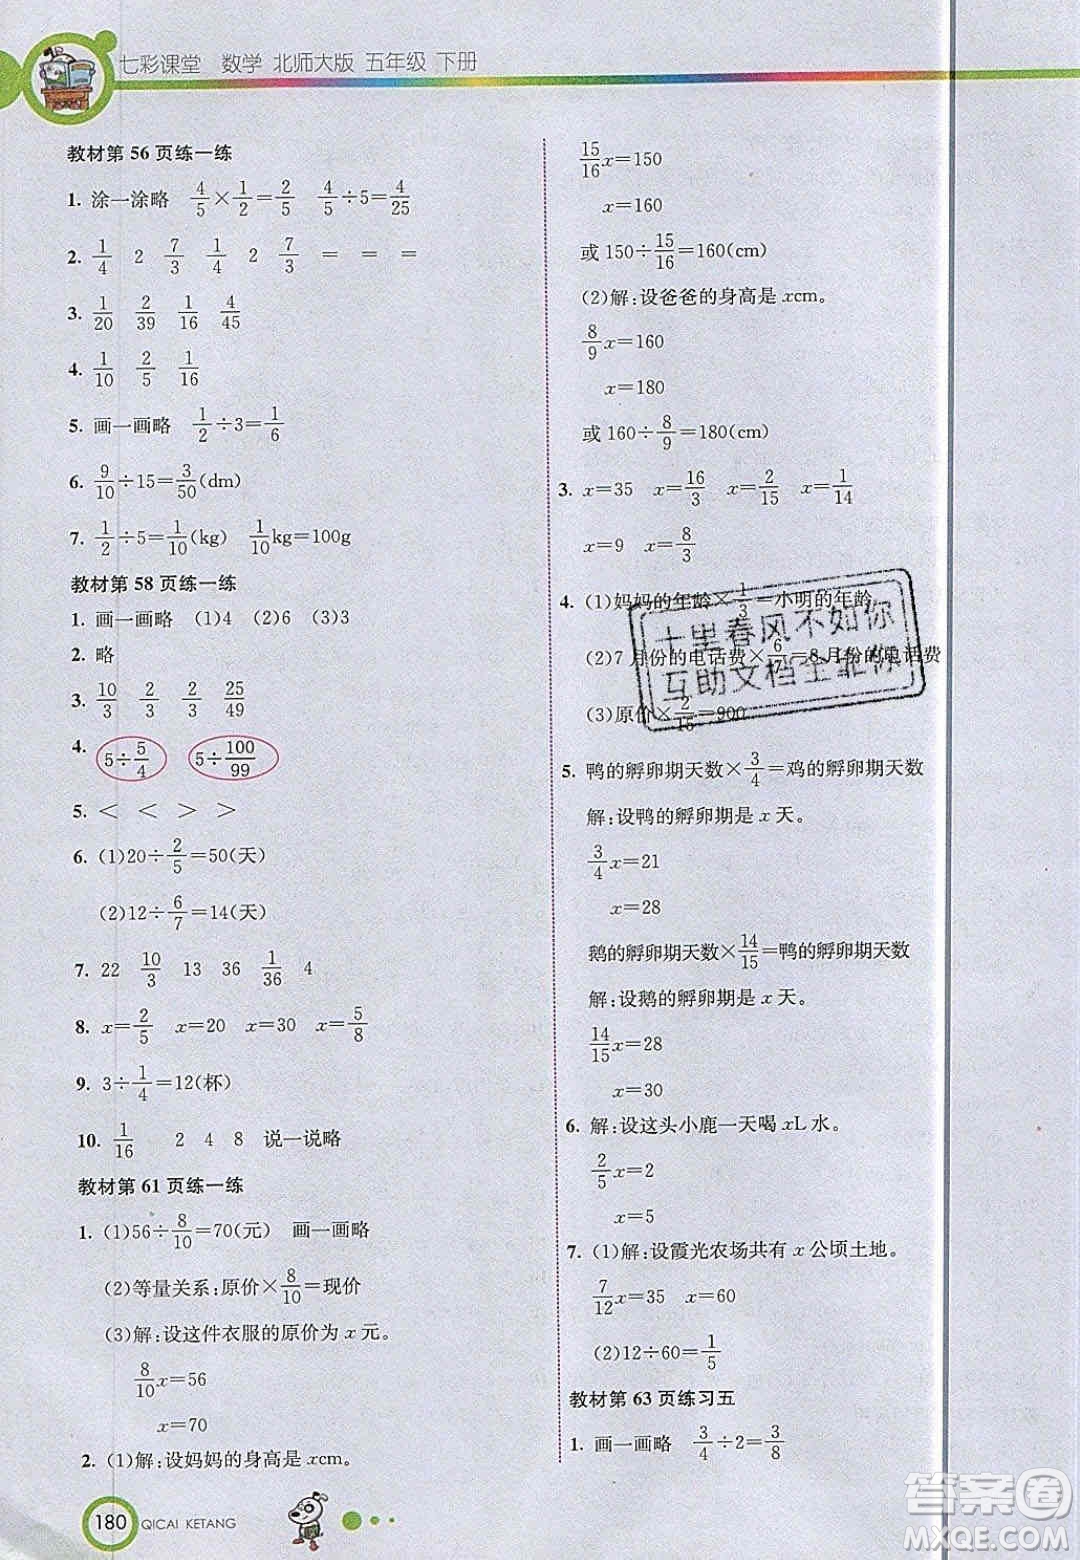 七彩课堂 数学 北师大版 五年级 下册
教材第 56 页练一练
1. 涂一涂略 4/5×1/2=2/5 4/5÷5=4/25
2. 1/4 2 7/3 1/4 2 7/3 = = =
3. 1/20 2/39 1/16 4/45
4. 1/10 2/5 1/16
5. 画一画略 1/2÷3=1/6
6. 9/10÷15=3/50(dm)
7. 1/2÷5=1/10(kg) 1/10kg=100g
教材第 58 页练一练
1. 画一画略 (1)4 (2)6 (3)3
2. 略
3. 10/3 2/3 2/3 25/49
4. 5÷5/4 5÷100/99
5. < < > >
6. (1)20÷2/5=50(天)
(2)12÷6/7=14(天)
7. 22 10/3 13 36 1/36 4
8. x=2/5 x=20 x=30 x=5/8
9. 3÷1/4=12(杯)
10. 1/16 2 4 8 说一说略
教材第 61 页练一练
1. (1)56÷8/10=70(元) 画一画略
(2)等量关系:原价×8/10=现价
(3)解:设这件衣服的原价为 x 元。
8/10x=56
x=70
2. (1)解:设妈妈的身高是 xcm。
15/16x=150
x=160
或 150÷15/16=160(cm)
(2)解:设爸爸的身高是 xcm。
8/9x=160
x=180
或 160÷8/9=180(cm)
3. x=35 x=16/3 x=2/15 x=1/14
x=9 x=8/3
4. (1)妈妈的年龄×1/3=小明的年龄
(2)7 月份的电话费×6/7=8 月份的电话费
(3)原价×2/15=900
十里春风不如你
互助文档全靠你
5. 鸭的孵卵期天数×3/4=鸡的孵卵期天数
解:设鸭的孵卵期是 x 天。
3/4x=21
x=28
鹅的孵卵期天数×14/15=鸭的孵卵期天数
解:设鹅的孵卵期是 x 天。
14/15x=28
x=30
6. 解:设这头小鹿一天喝 xL 水。
2/5x=2
x=5
7. (1)解:设霞光农场共有 x 公顷土地。
7/12x=35 x=60
(2)12÷60=1/5
教材第 63 页练习五
1. 画一画略 3/4÷2=3/8
180 QICAI KETANG
答案圈
MXQE.COM